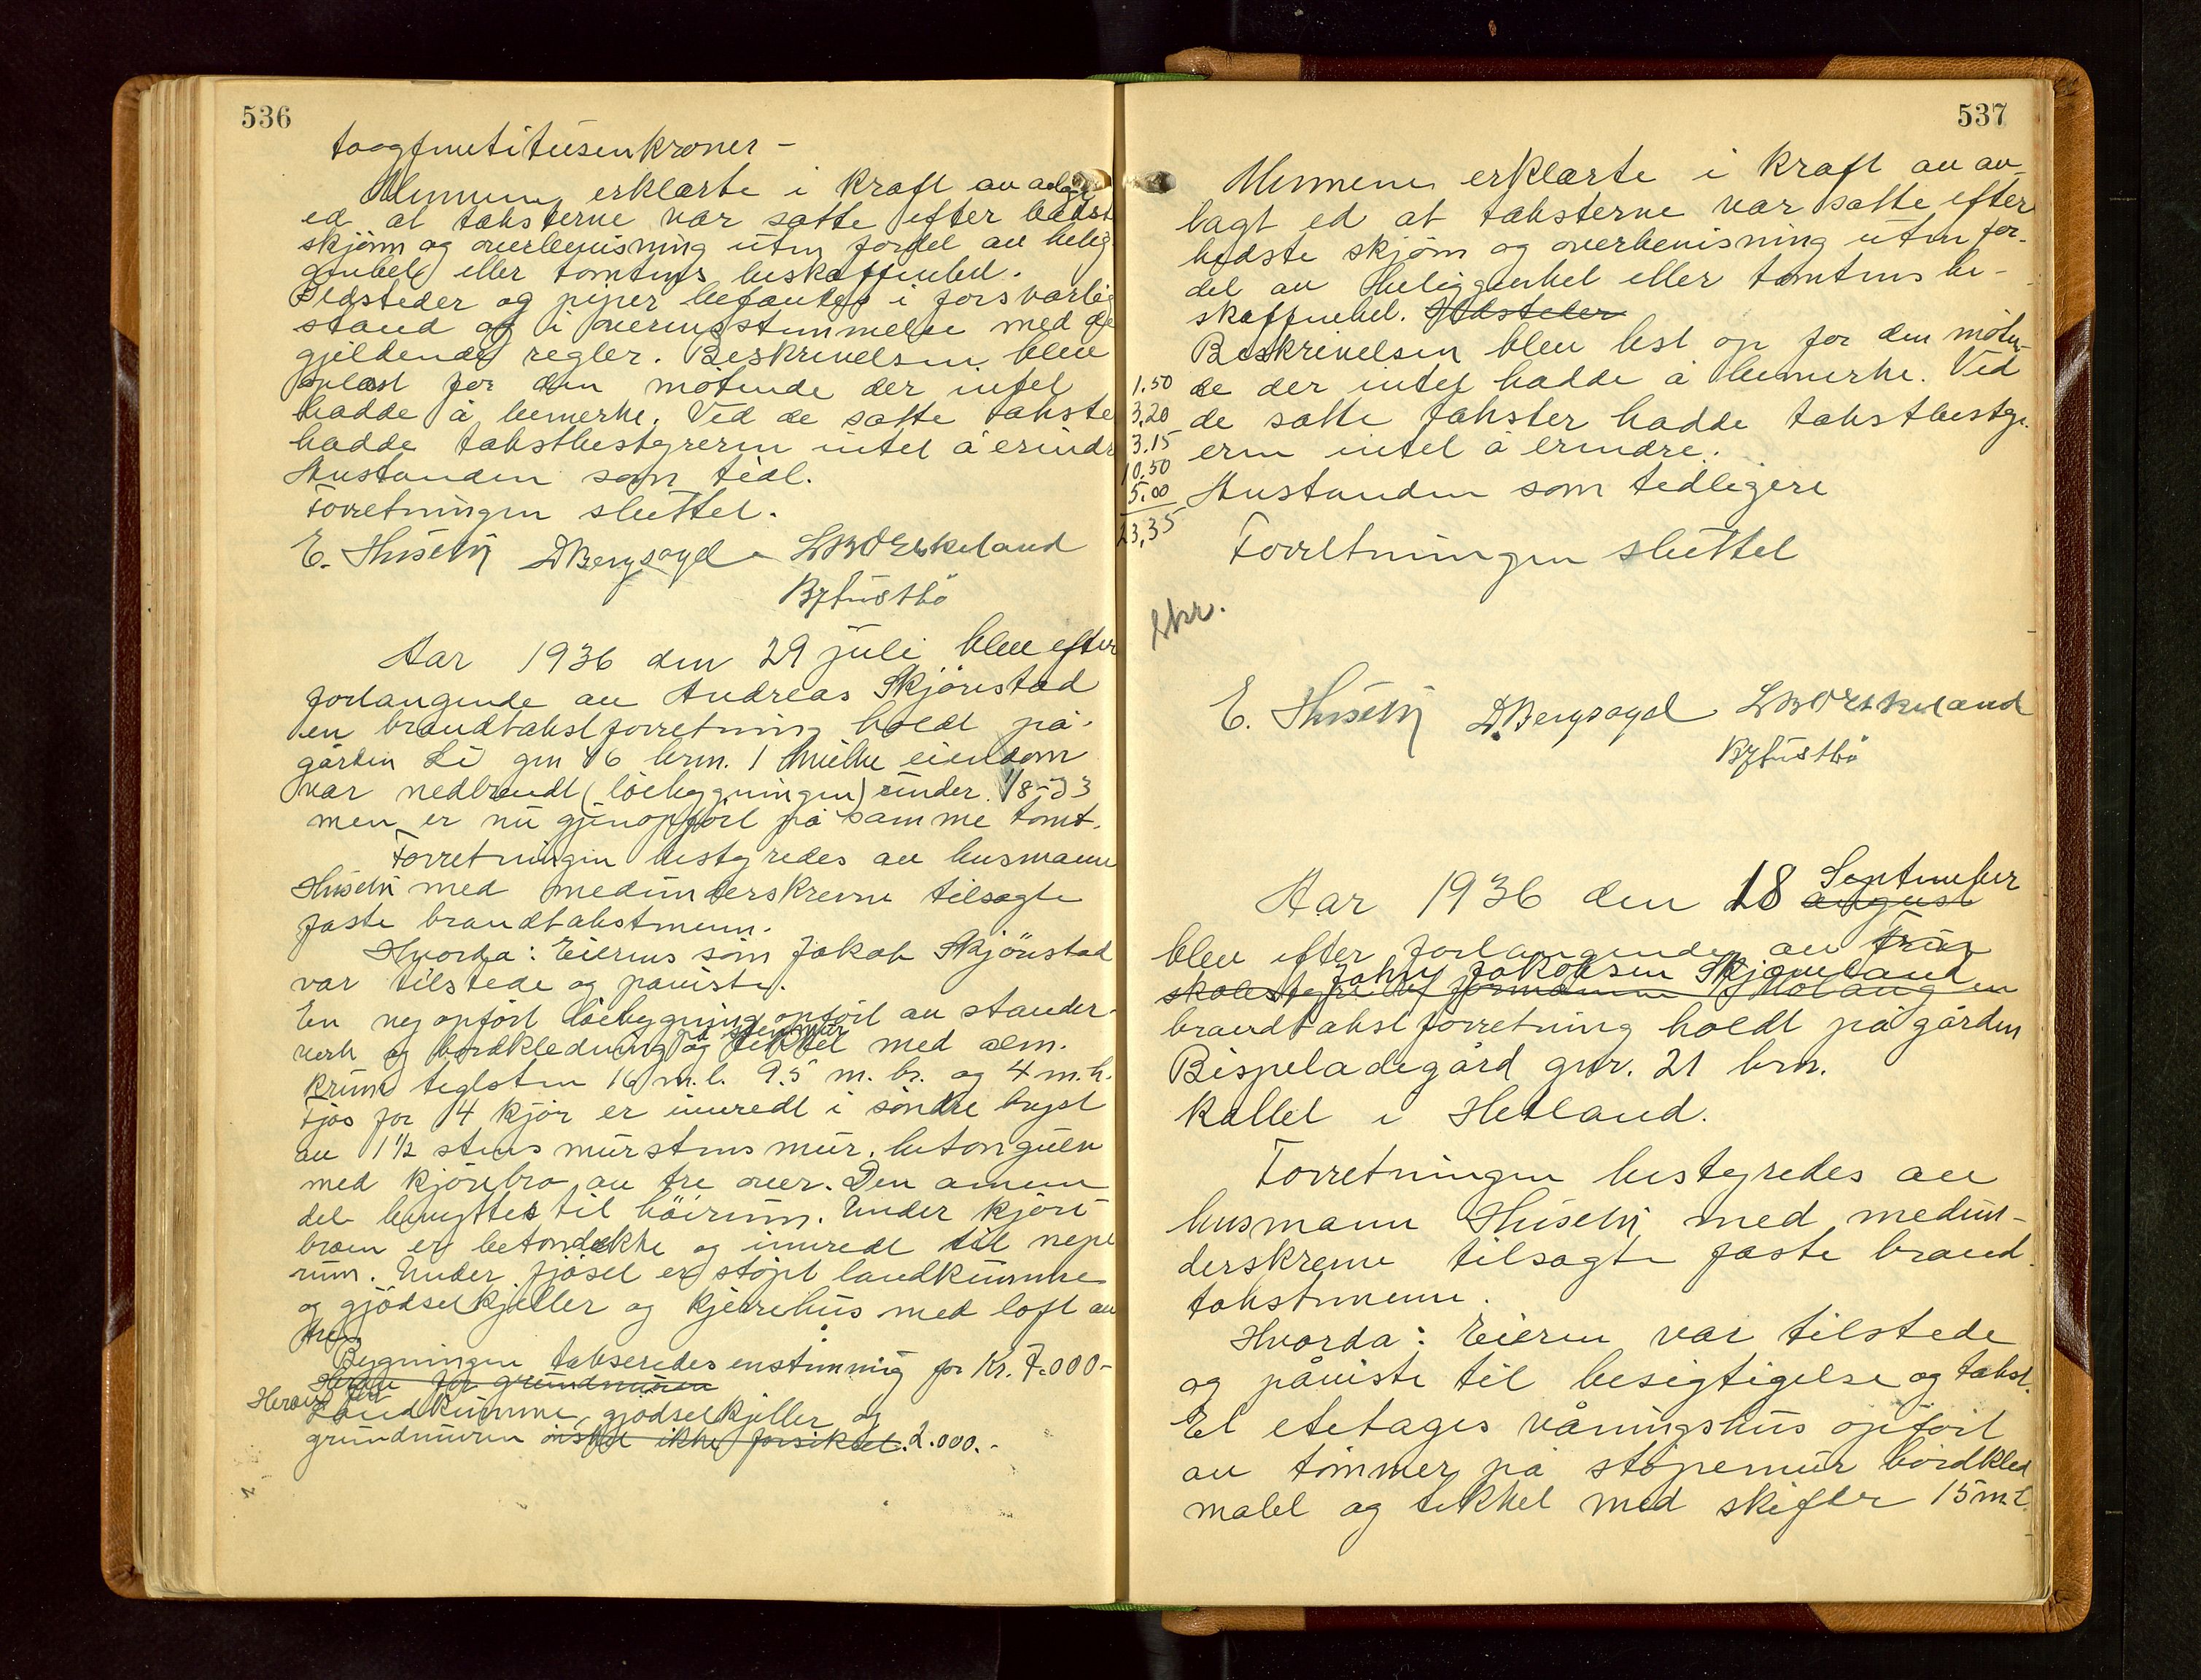 536
toogfemtitusenkroner -
Mennene erklærte i kraft av avlagt
ed at taksterne var satte efter bedst
skjönn og overbevisning uten fordel av belig
genhet eller tomtens beskaffenhet.
Ildsteder og piper befantes i forsvarlig
stand og i overensstemmelse med de
gjeldende regler. Beskrivelsen blev
oplæst for den mötende der intet
hadde å bemerke. Ved de satte takste
hadde takstbestyreren intet å erindr
Avstanden som tidl.
Forretningen sluttet.
E. Husebÿ DBergsagel LWOrskeland
Aar 1936 den 29 juli blev efter
forlangende av Andreas Skjörestad
en brandtakstforretning holdt på
gården Li gnr 46 brn. 1 hvilke eiendom
var nedbrendt (löebygningen) under 1/8-33
men er nu gjenopfört på samme tomt.
Forretningen bestyredes av lensmann
Husebÿ med medunderskrevne tilsagte
faste brandtakstmenn.
Hvorda: Eierens sön Jakob Skjörestad
var tilstede og påviste.
En ny opfört löebygning opfört av stander-
verk og bordkledning og stenmur tekket med alm.
krum teglsten 16 m.l. 9.5 m. br. og 4 m.h.
Fjös for 14 kjör er innredt i söndre byst
av 1 1/2 stens murstens mur, betongulv
med kjörebro av tre over. Den annen
del benyttes til höirum. Under kjöre
broen er betondekke og innredt til nepe
rum. Under fjöset er stöpt landkumme
og gjödselkjeller og kjerrehus med loft av
tre.
Bygningen takseredes enstemmig for Kr. 7.000-
Herav for grundmuren
Herav for
Landkumme, gjödselkjeller og
grundmuren önsket ikke forsikret. 2.000.-
537
Mennene erklærte i kraft av av-
lagt ed at taksterne var satte efter
bedste skjönn og overbevisning uten for-
del av beliggenhet eller tomtens be-
skaffenhet. Ildsteder
Beskrivelsen blev lest op for den möten-
1.50 de der intet hadde å bemerke. Ved
3,20 de satte takster hadde takstbestyr
3.15 eren intet å erindre.
10.50
5.00 Avstanden som tidligere
23,35
Forretningen sluttet
E. Husebÿ DBergsagel LWOrskeland
September
Aar 1936 den 18 august
blev efter forlangende av Fru
John Jakobsen Skjæveland
skolebestyrer en
brandtakstforretning holdt på gården
Bispeladegård gnr. 21 brn.
kallet i Hetland.
Forretningen bestyredes av
lensmann Husebÿ med medun-
derskrevne tilsagte faste brand
takstmenn.
Hvorda: Eieren var tilstede
og påviste til besigtigelse og takst.
Et etetages våningshus opfört
av tömmer på stöpemur bordkled
malet og tekket med skifer 15 m.l.